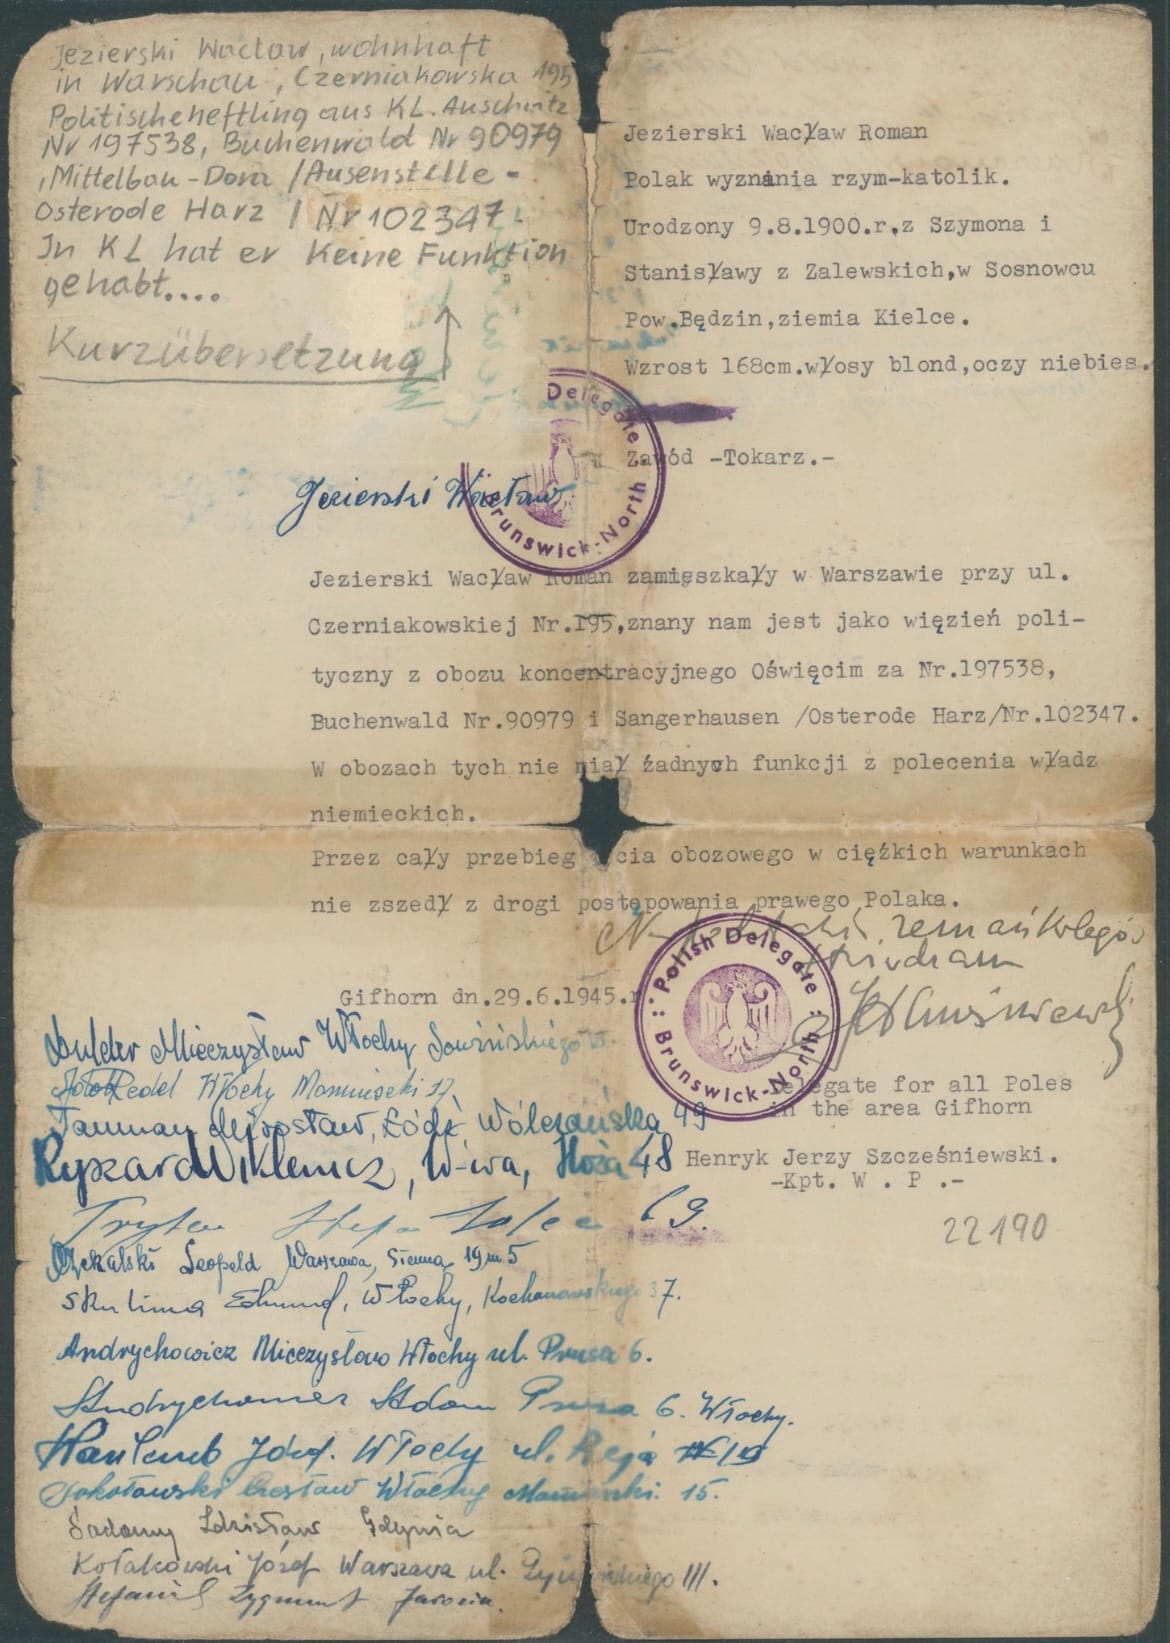 Jezierski Wacław, wohnhaft
in Warschau, Czerniakowska 195
Politischeheftling aus KL. Auschwitz
Nr 197538, Buchenwald Nr 90979
, Mittelbau-Dora /Ausenstelle -
Osterode Harz / Nr 102347.
In KL hat er keine Funktion
gehabt....
Kurzübersetzung
Jezierski Wacław Roman
Polak wyznania rzym-katolik.
Urodzony 9.8.1900.r,z Szymona i
Stanisławy z Zalewskich,w Sosnowcu
Pow.Będzin,ziemia Kielce.
Wzrost 168cm.włosy blond,oczy niebies.
Zawód -Tokarz.-
Delegate
Brunswick-North
Jezierski Wacław
Jezierski Wacław Roman zamięszkały w Warszawie przy ul.
Czerniakowskiej Nr.195,znany nam jest jako więzień poli-
tyczny z obozu koncentracyjnego Oświęcim za Nr.197538,
Buchenwald Nr.90979 i Sangerhausen /Osterode Harz/Nr.102347.
W obozach tych nie miał żadnych funkcji z polecenia władz
niemieckich.
Przez cały przebieg cia obozowego w ciężkich warunkach
nie zszedł z drogi postępowania prawego Polaka.
kolegów
Gifhorn dn.29.6.1945.r
Polish Delegate
Brunswick-North
Delegate for all Poles
in the area Gifhorn
Henryk Jerzy Szcześniewski.
-Kpt. W . P .-
22190
Mieczysław Włochy Sowińskiego
Redel Włochy
Łódź, Wólczańska 49
Ryszard Wiklenicz, W-wa, Hoża 48
69.
Leopold Warszawa, Sienna, 19 m 5
Skulima Edmund, Włochy, Kochanowskiego 37.
Andrychowicz Mieczysław Włochy ul. Prusa 6.
Andrychowicz Adam Prusa 6. Włochy.
Józef. Włochy ul. Reja
Sokołowski Czesław Włochy 15.
Sadomy Zdzisław Gdynia
Kołakowski Józef Warszawa ul. III.
Stefaniak Zygmunt Jarocin.